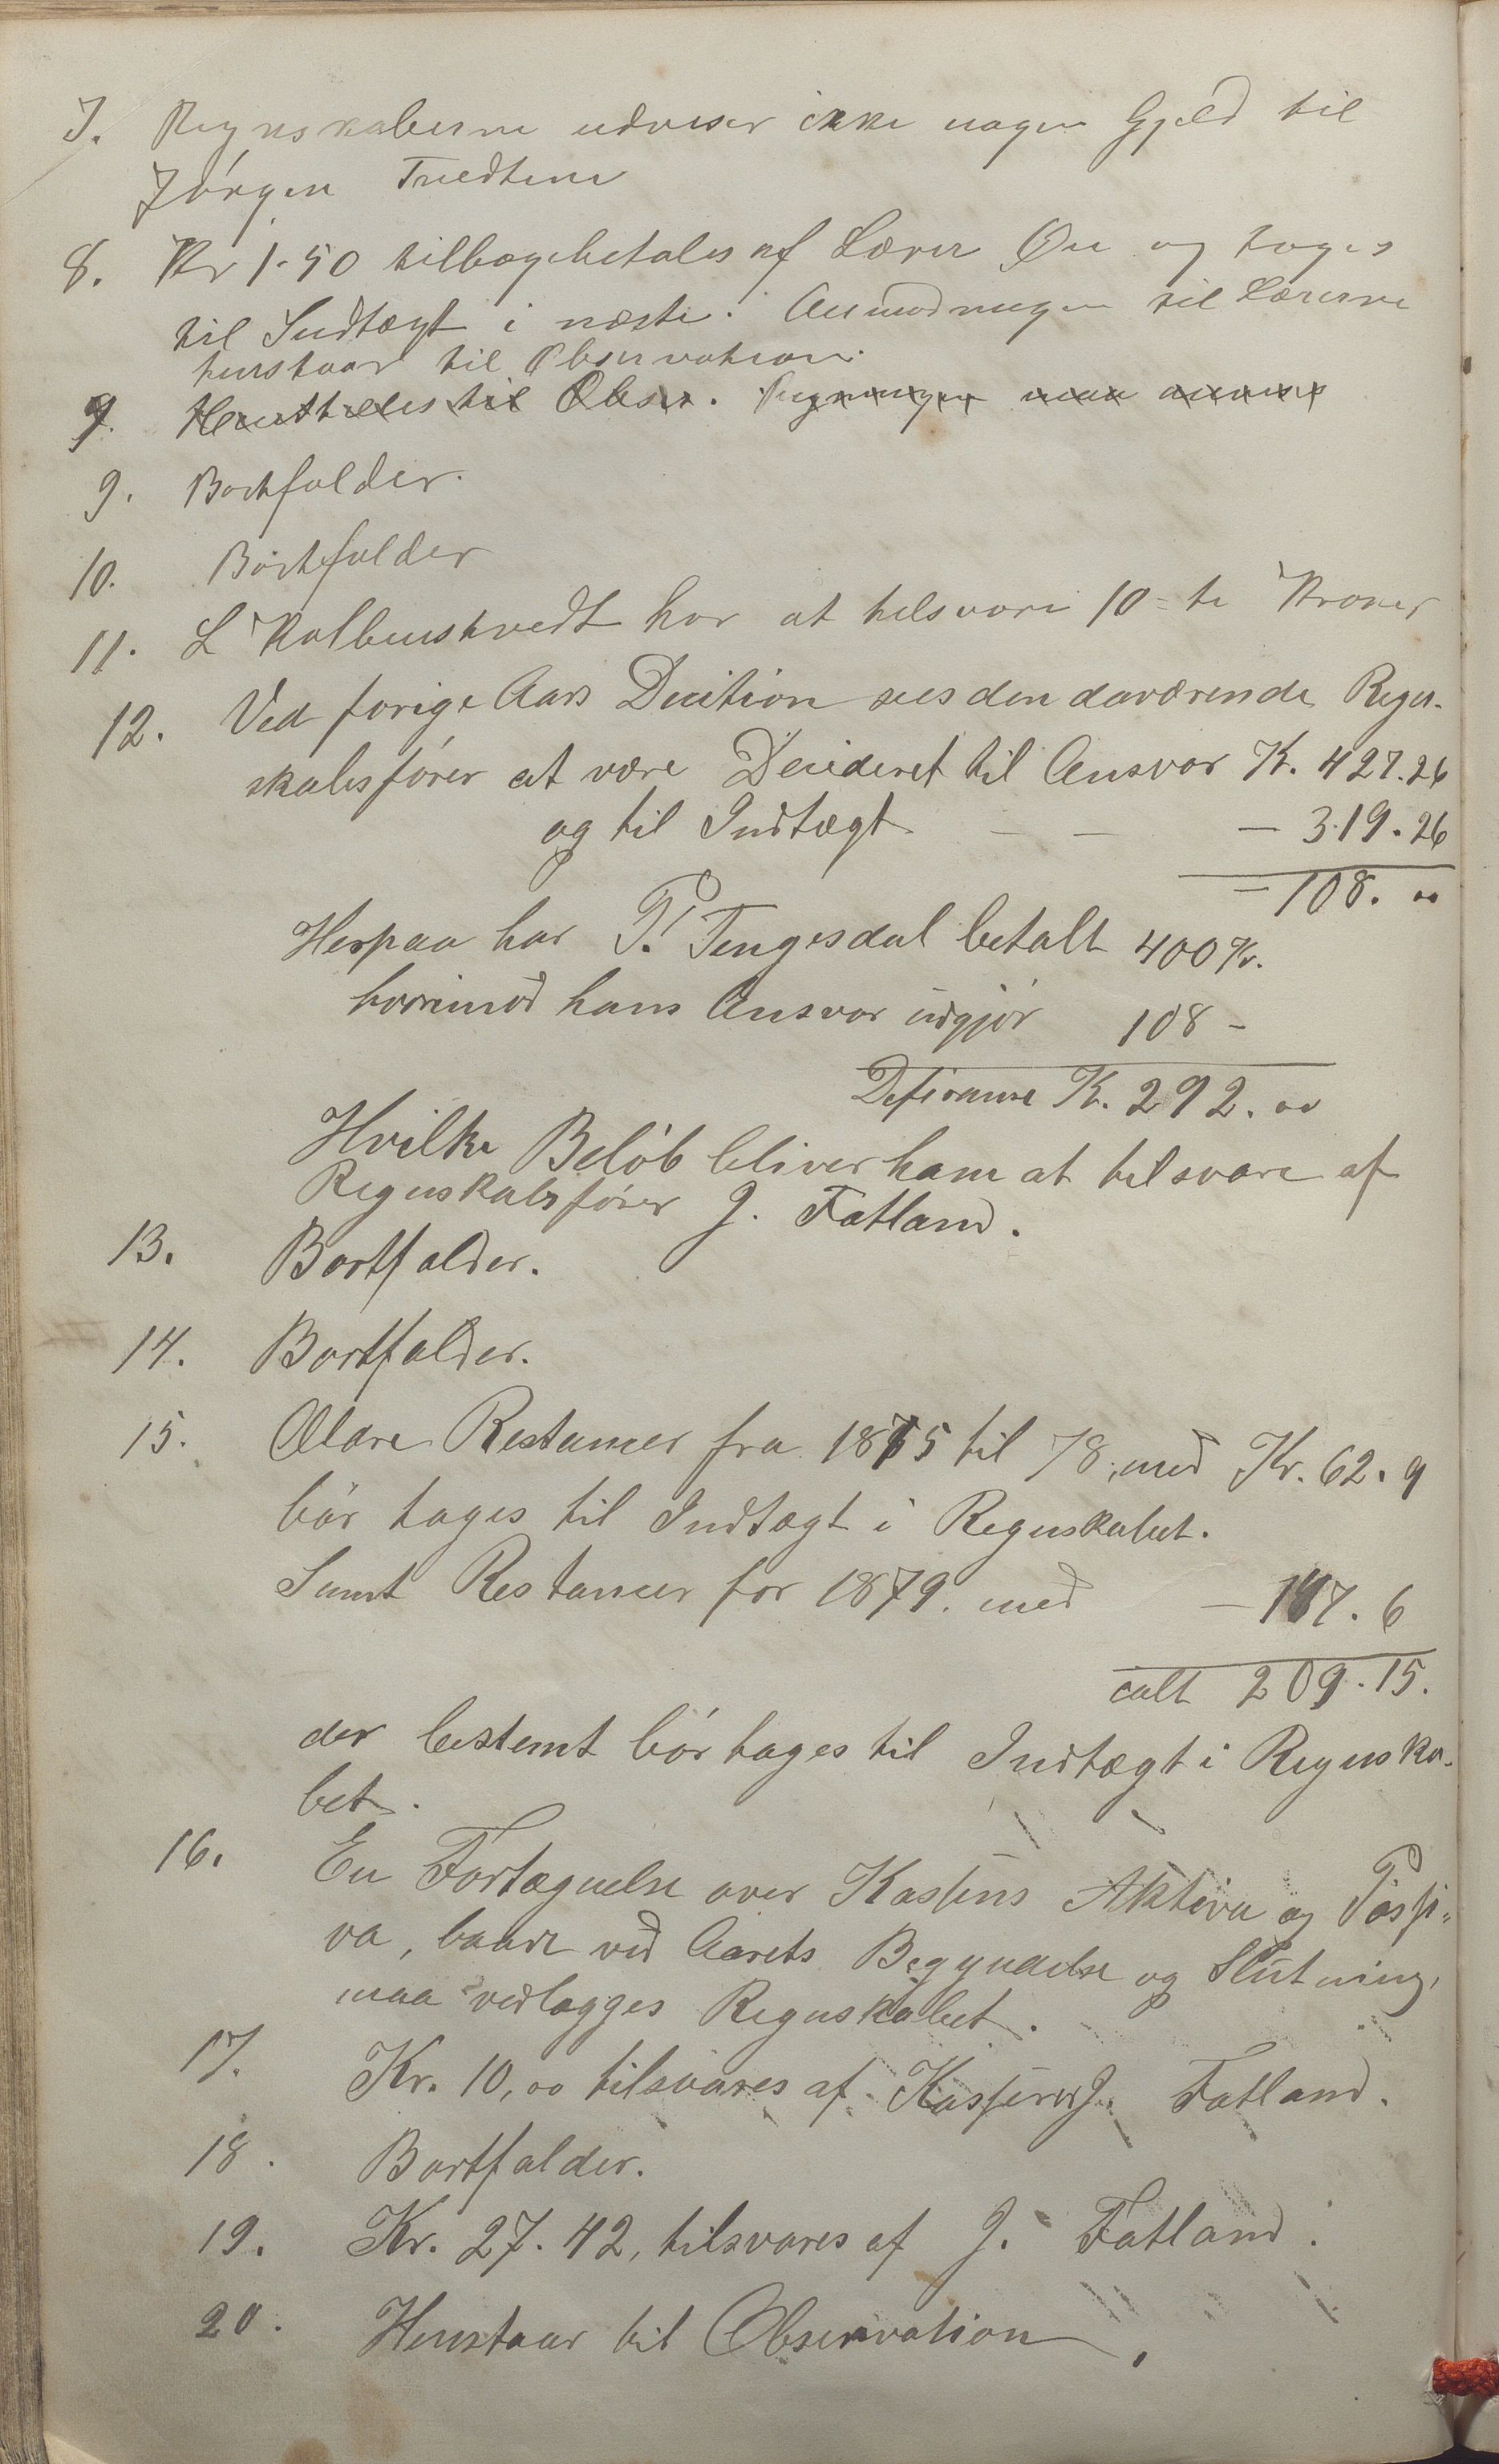 7. Regnskaberne udviser ikke nogen Gjeld til
Jórgen Tvedtene
8. Kr 1.50 tilbagebetales af Lærer Øie og tages
til Indtægt i næste. Anmodningen til Lærerne
henstaar til Observation.
9. Henstilles til Obser.
9. Bortfalder.
10. Bórtfalder
11. L Kolbenstvedt har at tilsvare 10-ti Kroner
12. Ved forige Aars Decition sees den daværende Regn-
skabsfórer at være Decideret til Ansvar K. 427.26
og til Indtægt - - - 319.26
- 108. oo
Herpaa har P. Tengesdal betalt 400 Kr.
hvorimod hans Ansvar údgjór 108 -
Deferanse K. 292. oo
Hvilke Belób bliver ham at tilsvare af
Regnskabsfórer J. Fatland.
13. Bortfalder.
14. Bortfalder.
15. Ældre Restancer fra 1875 til 78, med Kr. 62. 9
bór tages til Indtægt i Regnskabet.
Samt Restancer for 1879. med - 147. 6
ialt 209.15.
der bestemt bór tages til Indtægt i Regnska-
bet.
16. En Fortegnelse over Kassens Aktiva og Passi-
va, baade ved Aarets Begyndelse og Slutning,
maa vedlægges Regnskabet.
17. Kr. 10, oo tilsvares af Kasserer J. Fatland.
18. Bortfalder.
19. Kr. 27.42, tilsvares af J. Fatland.
20. Henstaar til Observation.